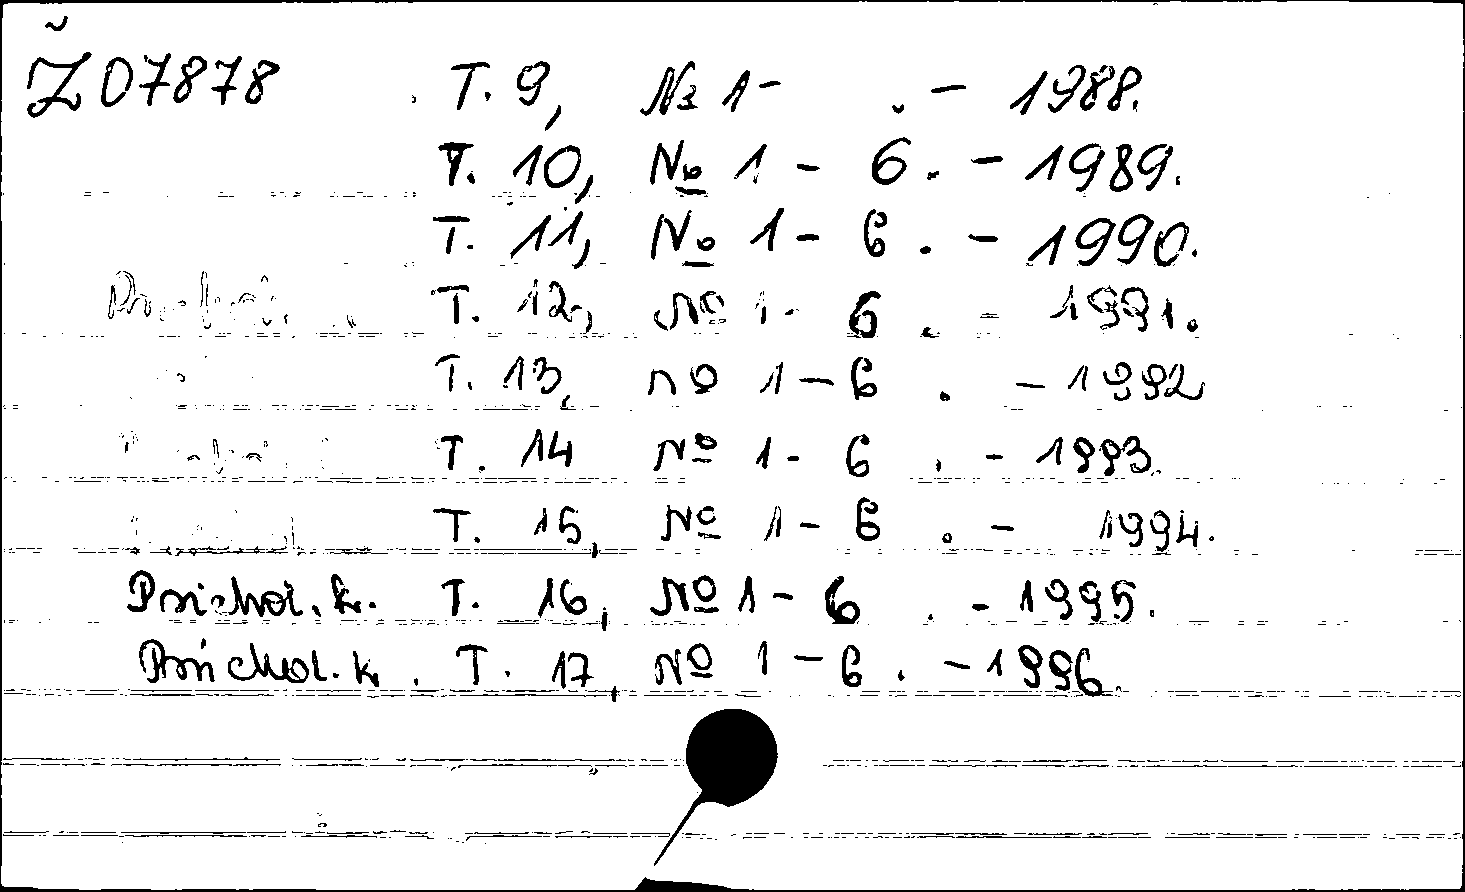 Ž07878 T. 9, № 1- . - 1988.
T. 10, № 1 - 6. - 1989.
T. 11, № 1 - 6. - 1990.
T. 12, № 1 - 6. - 1991.
T. 13, № 1 - 6. - 1992
T. 14 № 1 - 6. - 1993.
T. 15, № 1 - 6. - 1994.
Psichol. k. T. 16, № 1 - 6. - 1995.
Psichol. k. T. 17, № 1 - 6. - 1996.